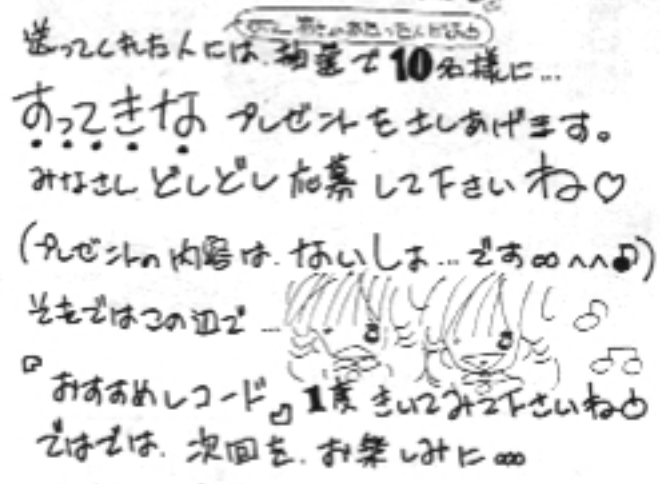 送ってくれた人には、抽選で10名様に…
すってきな プレゼントをさしあげます。
みなさん どしどし 応募 して下さいね♡
(プレゼントの内容は、ないしょ…です∞^^♪)
それではこの辺で…
『おすすめレコード』1度きいてみて下さいね
ではでは、次回を、お楽しみに…